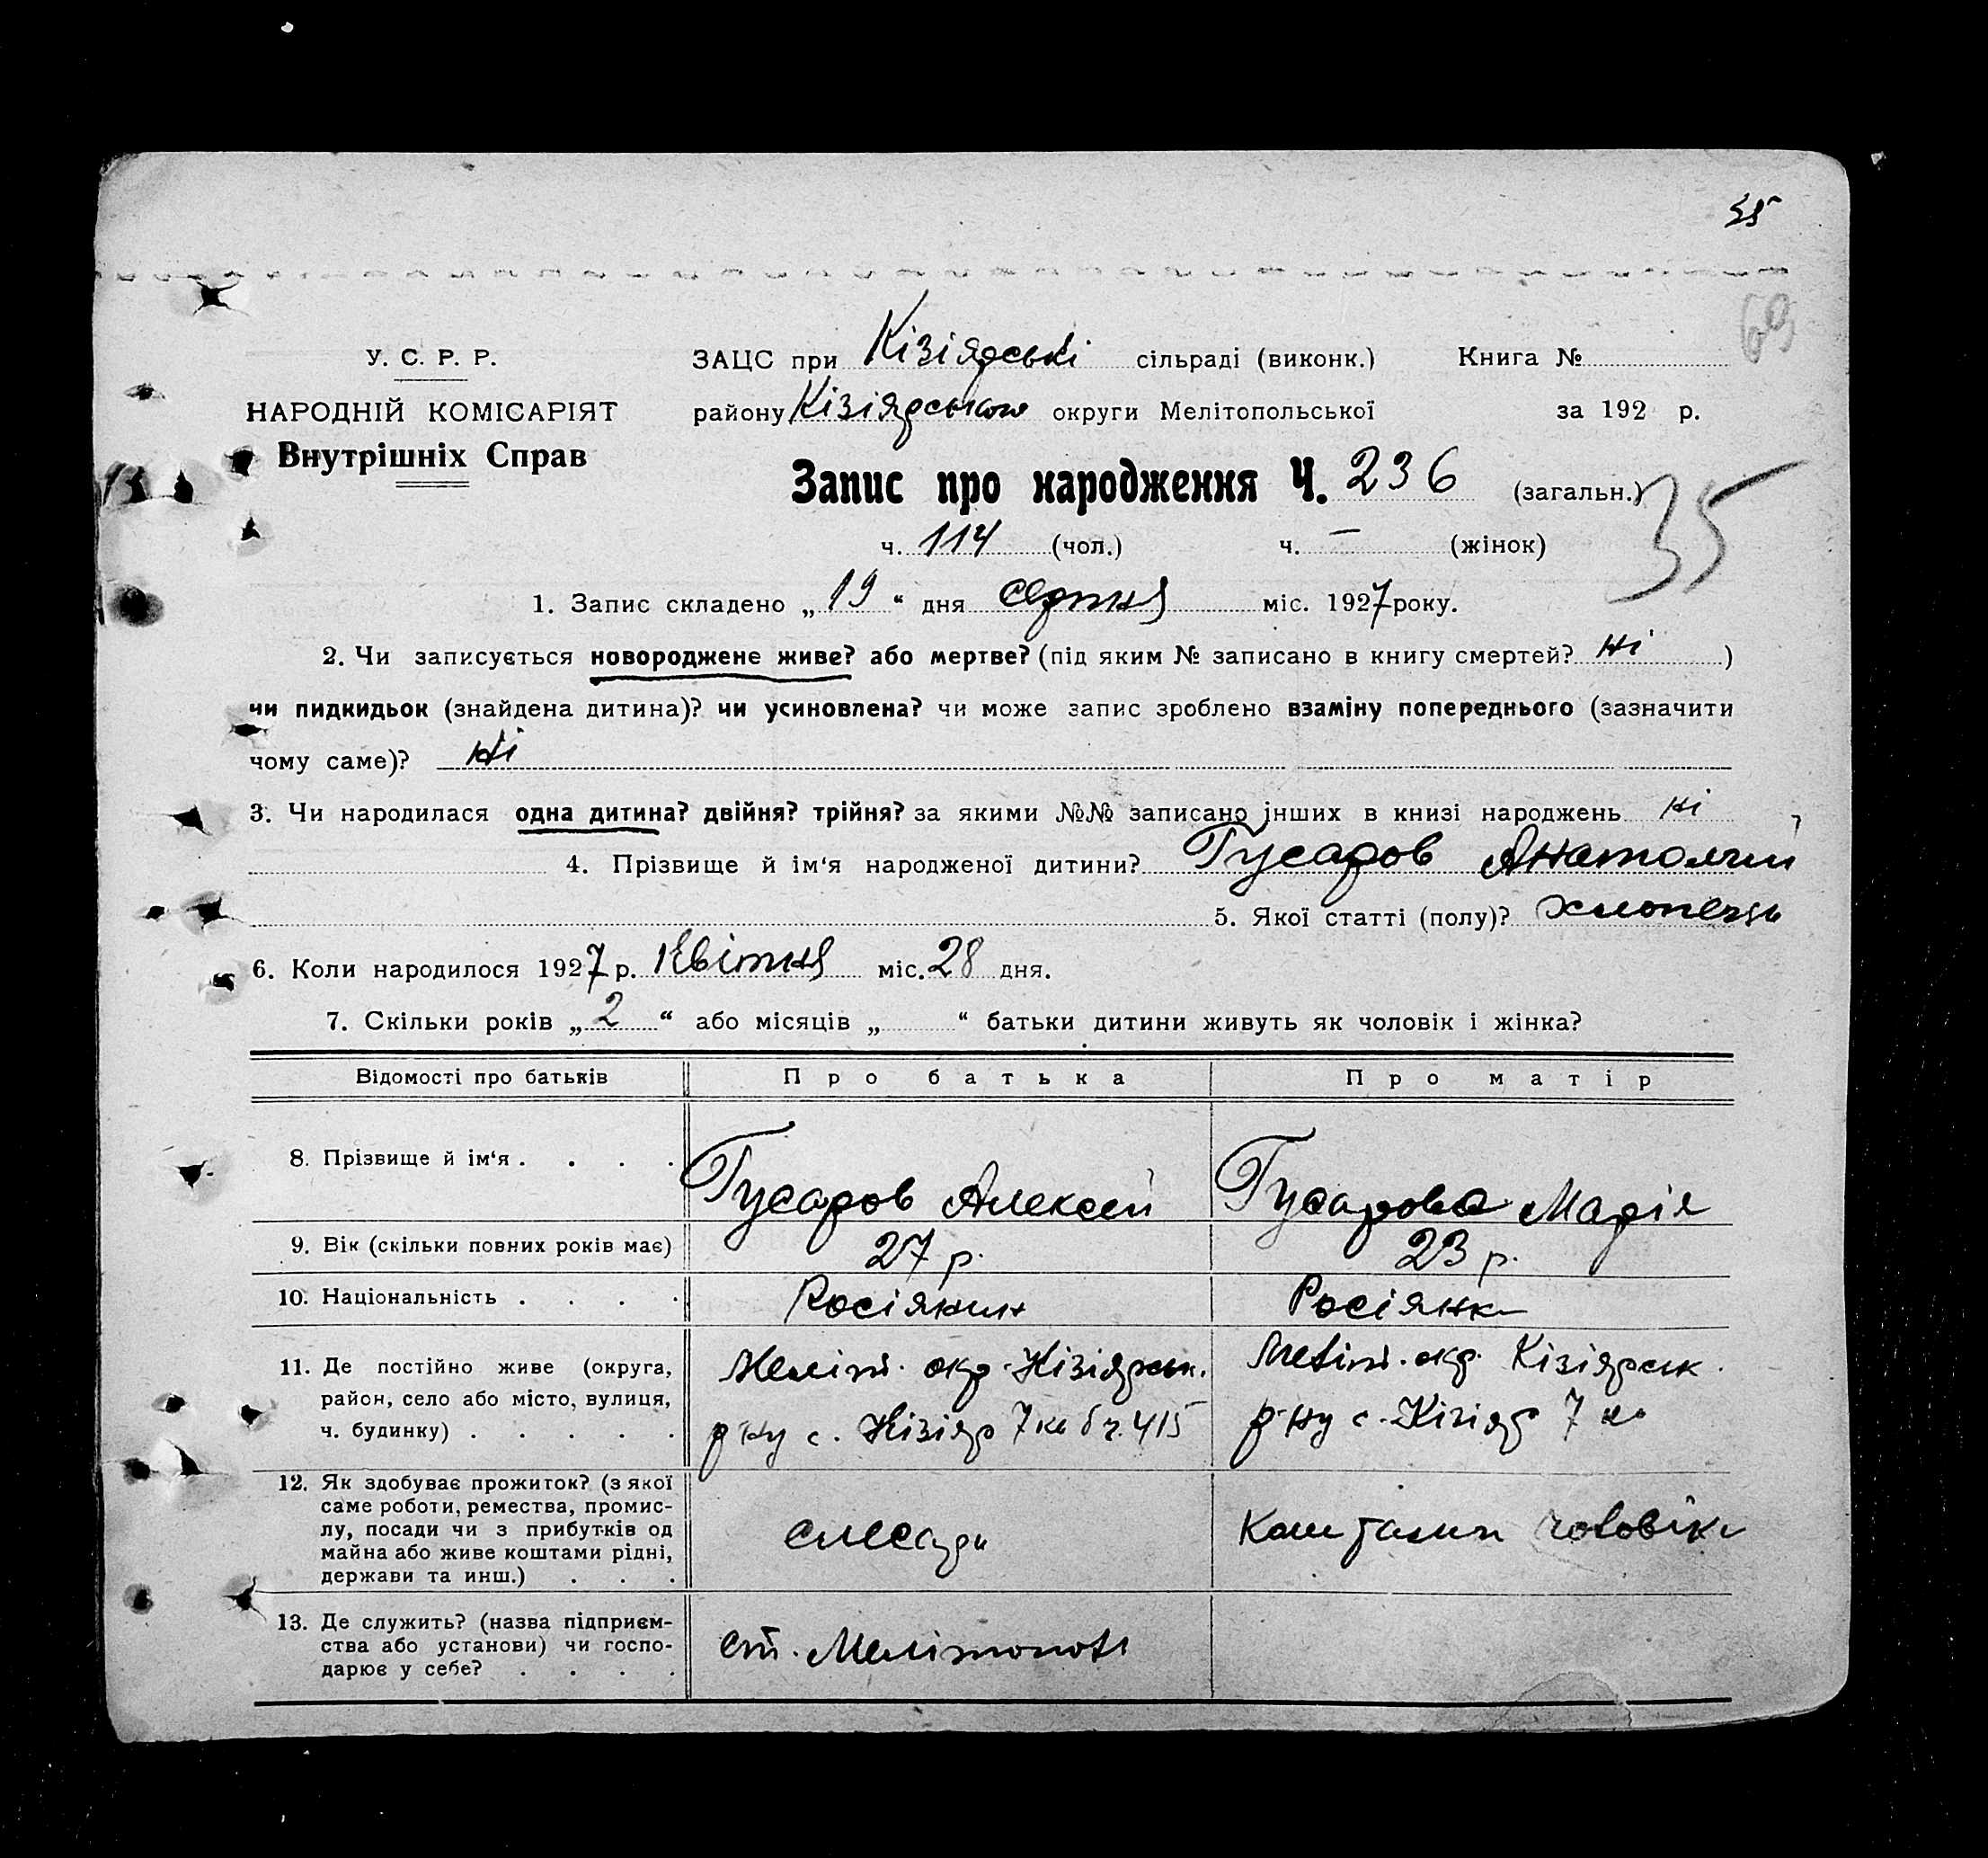 35
69
У. С. Р. Р.
ЗАЦС при Кізіярські сільраді (виконк.) Книга №
НАРОДНІЙ КОМІСАРІЯТ
району Кізіярського округи Мелітопольської за 192 р.
Внутрішніх Справ
Запис про народження Ч. 236 (загальн.)
35
ч. 114 (чол.) ч. — (жінок)
1. Запис складено „19“ дня серпня міс. 1927 року.
2. Чи записується новороджене живе? або мертве? (під яким № записано в книгу смертей? ні )
чи пидкидьок (знайдена дитина)? чи усиновлена? чи може запис зроблено взаміну попереднього (зазначити
чому саме)? ні
3. Чи народилася одна дитина? двійня? трійня? за якими №№ записано інших в книзі народжень ні
4. Прізвище й ім‘я народженої дитини? Гусаров Анатолий
5. Якої статті (полу)? хлопець
6. Коли народилося 1927 р. Квітня міс. 28 дня.
7. Скільки років „2“ або місяців „ “ батьки дитини живуть як чоловік і жінка?
Відомості про батьків Про батька Про матір
8. Прізвище й ім‘я . . . . Гусаров Алексей Гусарова Марія
9. Вік (скільки повних років має) 27 р. 23 р.
10. Національність . . . . Росіянин Росіянка
11. Де постійно живе (округа,
район, село або місто, вулиця,
ч. будинку) . . . . .
Меліт. окр. Кізіярськ.
р-ну с. Кізіяр 7 кв б ч. 415
Меліт. окр. Кізіярськ.
р-ну с. Кізіяр 7 кв
12. Як здобуває прожиток? (з якої
саме роботи, ремества, промис-
лу, посади чи з прибутків од
майна або живе коштами рідні,
держави та инш.) . . .
слесарь
коштами чоловіка
13. Де служить? (назва підприєм-
ства або установи) чи госпо-
дарює у себе? . . . .
ст. Мелітополь